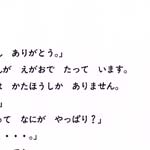 ありがとう。」
が えがおで たって います。
かたほうしか ありません。
」
って なにが やっぱり?」
・・・。」